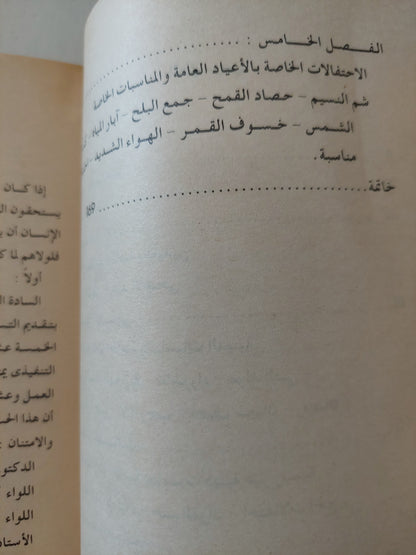 الفـصـل الخـامـس : ......................
الاحتفالات الخاصة بالأعياد العامة والمناسبات الخاصة
شم النسيم – حصاد القمح – جمع البلح – آبار المياه
الشمس – خسوف القمر – الهواء الشديد
مناسبة .
خاتمة ............................ 169
إذا كـان
يستحقون
الإنسان أن
فلولاهم لما
أولاً :
السادة
بتقديم
الخمسة
التنفيذى
العمل
أن هذا
والامتنان :
الدكتور
اللواء
اللواء
الأستاذ